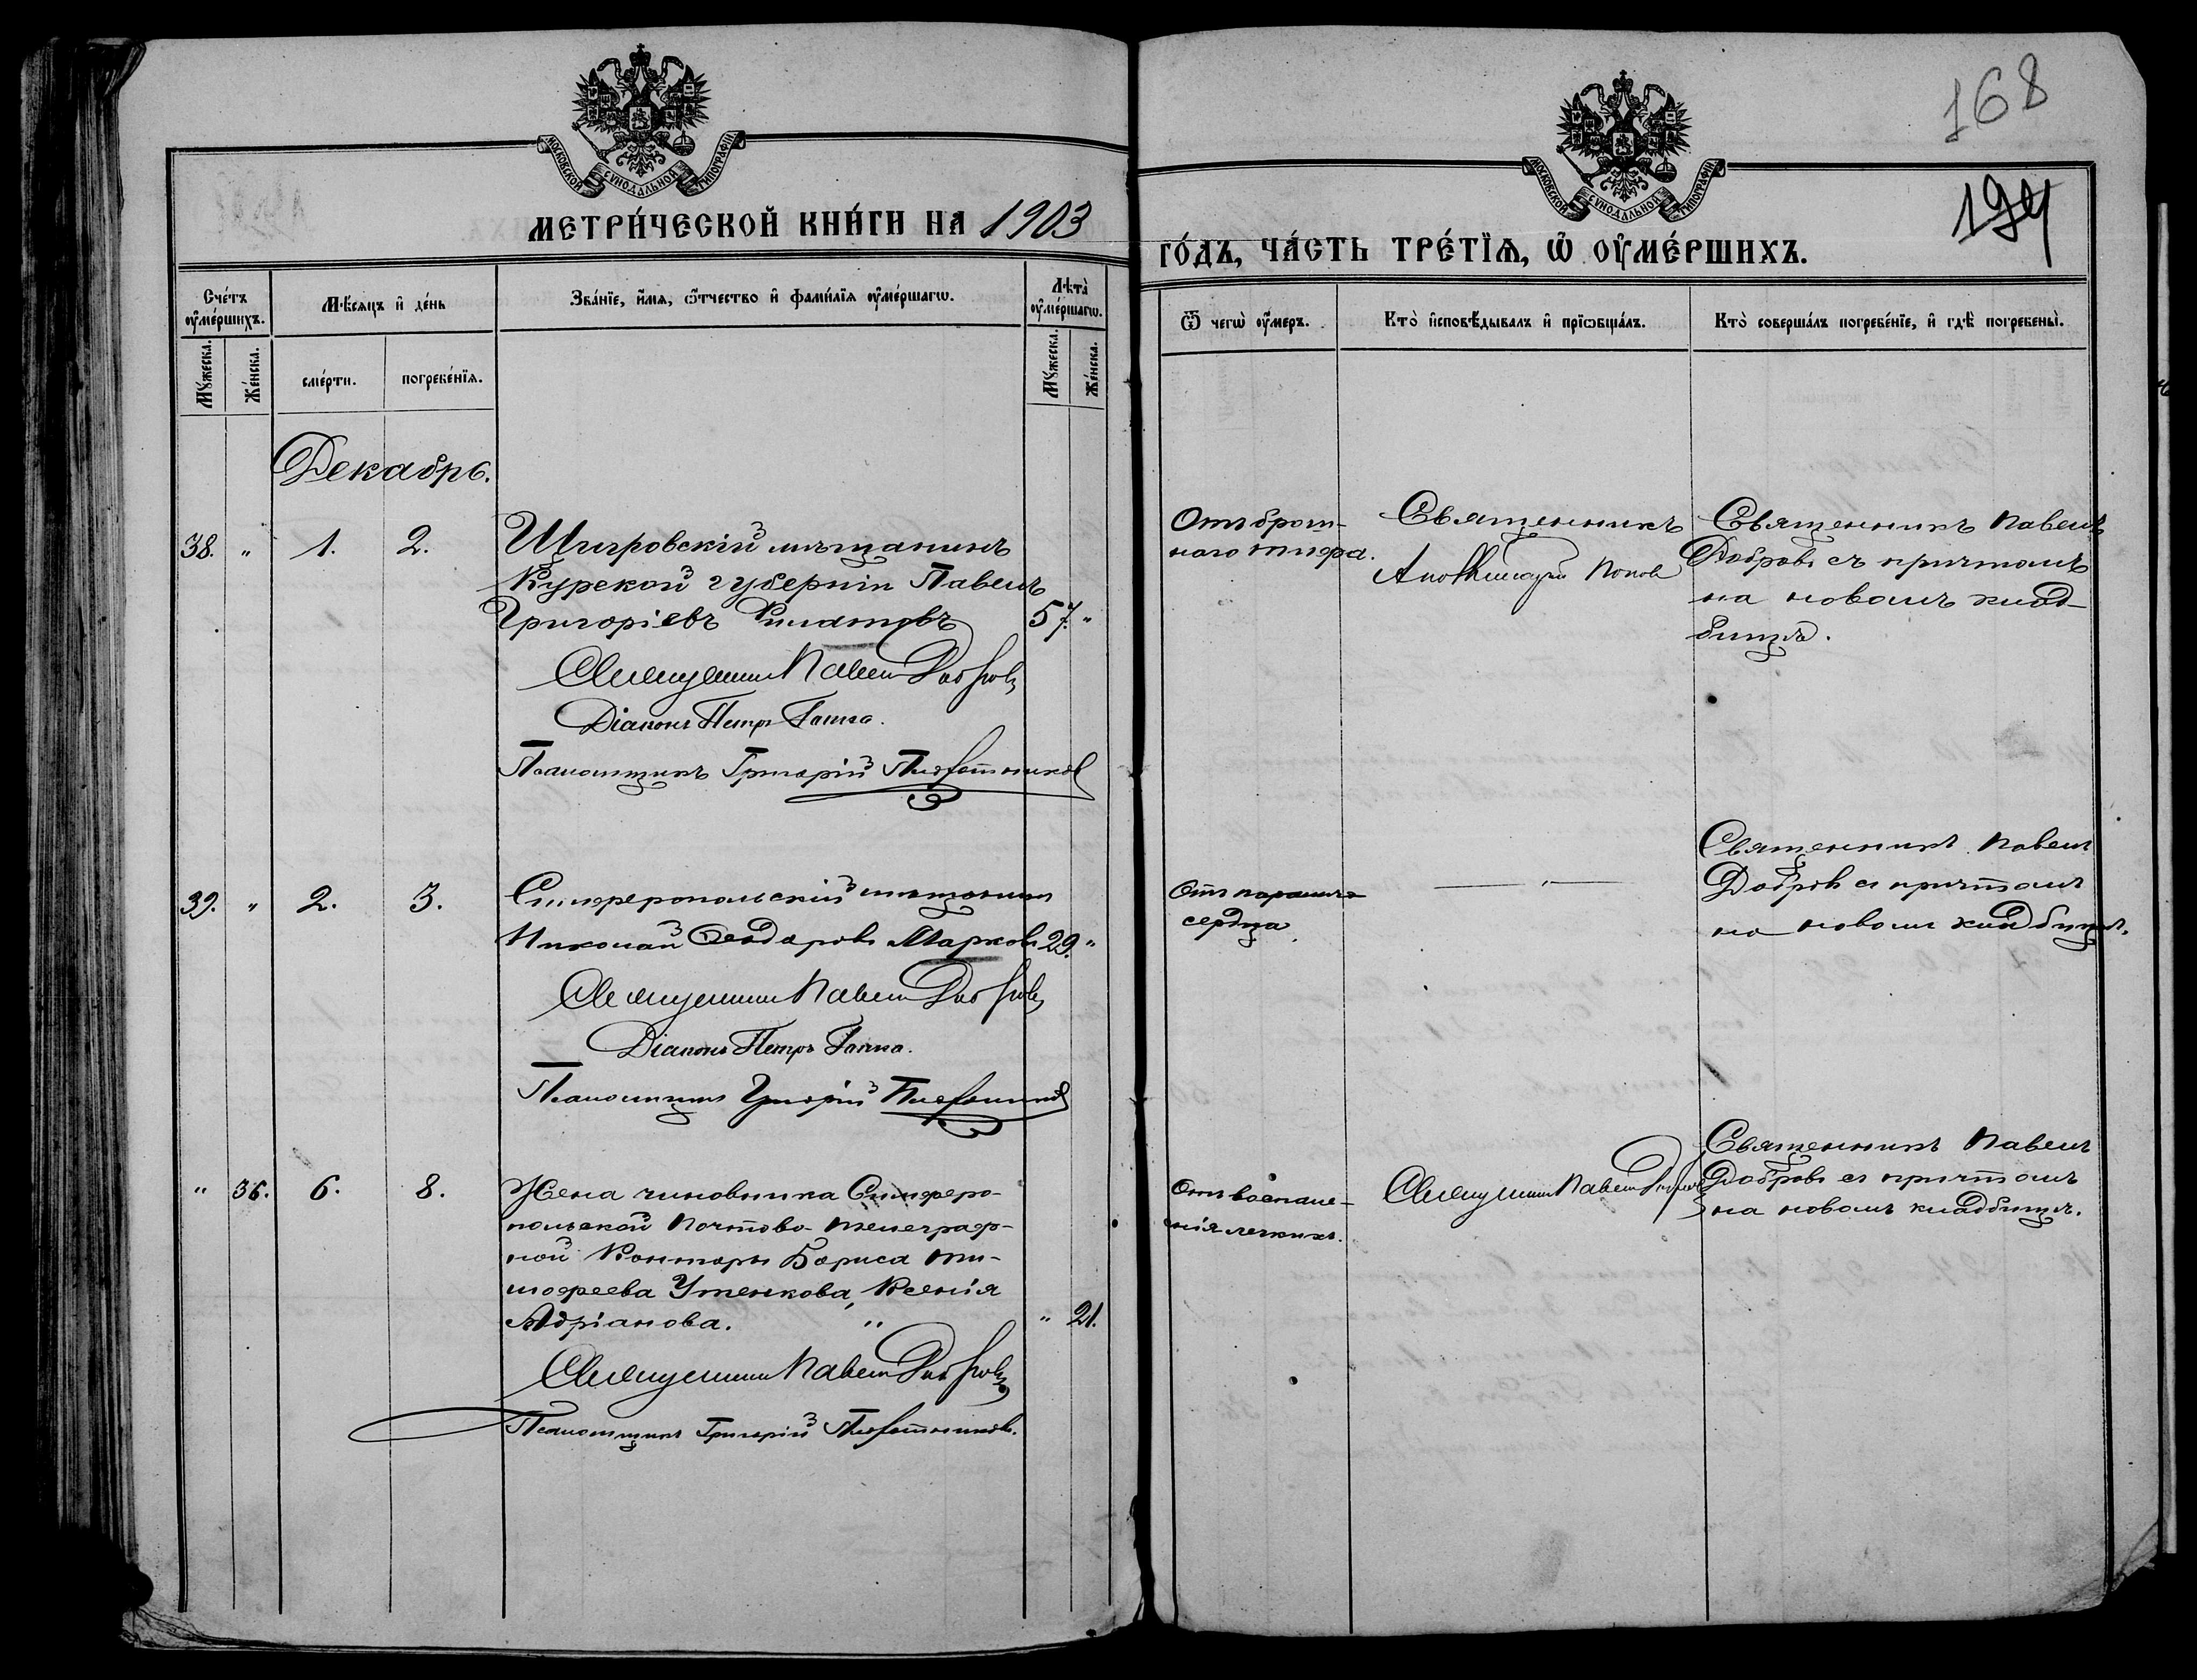 168
194
МОСКОВСКОЙ СѴНОДАЛЬНОЙ ТИПОГРАФІИ
МОСКОВСКОЙ СѴНОДАЛЬНОЙ ТИПОГРАФІИ
МЕТРИ́ЧЕСКОЙ КНИ́ГИ НА 1903
ГО́ДЪ, ЧА́СТЬ ТРЕ́ТЇѦ, Ѡ҆ ОУ҆МЕ́РШИХЪ.
Сче́тъ оу҆ме́ршихъ.
Мѣ́сяцъ и҆ де́нь
Зва́нїе, и҆́мѧ, ѻ҆́тчество и҆ фами́лїѧ оу҆ме́ршагѡ.
Лѣта̀ оу҆ме́ршагѡ.
Мꙋ́жеска.
Же́нска.
сме́рти.
погребе́нїѧ.
Мꙋ́жеска.
Же́нска.
Ѿ чегѡ̀ оу҆́меръ.
Кто̀ и҆сповѣ́дывалъ и҆ прїѡбща́лъ.
Кто̀ соверша́лъ погребе́нїе, и҆ гдѣ̀ погребены̀.
Декабрь.
38. " 1. 2.
Щигровскій мѣщанинъ
Курской губерніи Павелъ
Григоріевъ Филатовъ 57. "
Священникъ Павелъ Добровъ
Діаконъ Петръ
Псаломщикъ Григорій
Отъ брюш-
наго тифа.
Священникъ
Попов
Священникъ Павелъ
Добровъ съ причтомъ
на новомъ клад-
бищѣ.
39. " 2. 3.
Симферопольскій мѣщанинъ
Николай Ѳеодоровъ Марковъ 29. "
Священникъ Павелъ Добровъ
Діаконъ Петръ
Псаломщикъ Григорій
Отъ паралича
сердца.
— " —
Священникъ Павелъ
Добровъ съ причтомъ
на новомъ кладбищѣ.
" 36. 6. 8.
Жена чиновника Симферо-
польской Почтово-телеграф-
ной Конторы Бориса Ти-
мофеева Утенкова, Ксенія
Адріанова. " " 21.
Священникъ Павелъ Добровъ
Псаломщикъ Григорій
Отъ воспале-
нія легкихъ.
Священникъ Павелъ Добровъ
Священникъ Павелъ
Добровъ съ причтомъ
на новомъ кладбищѣ.